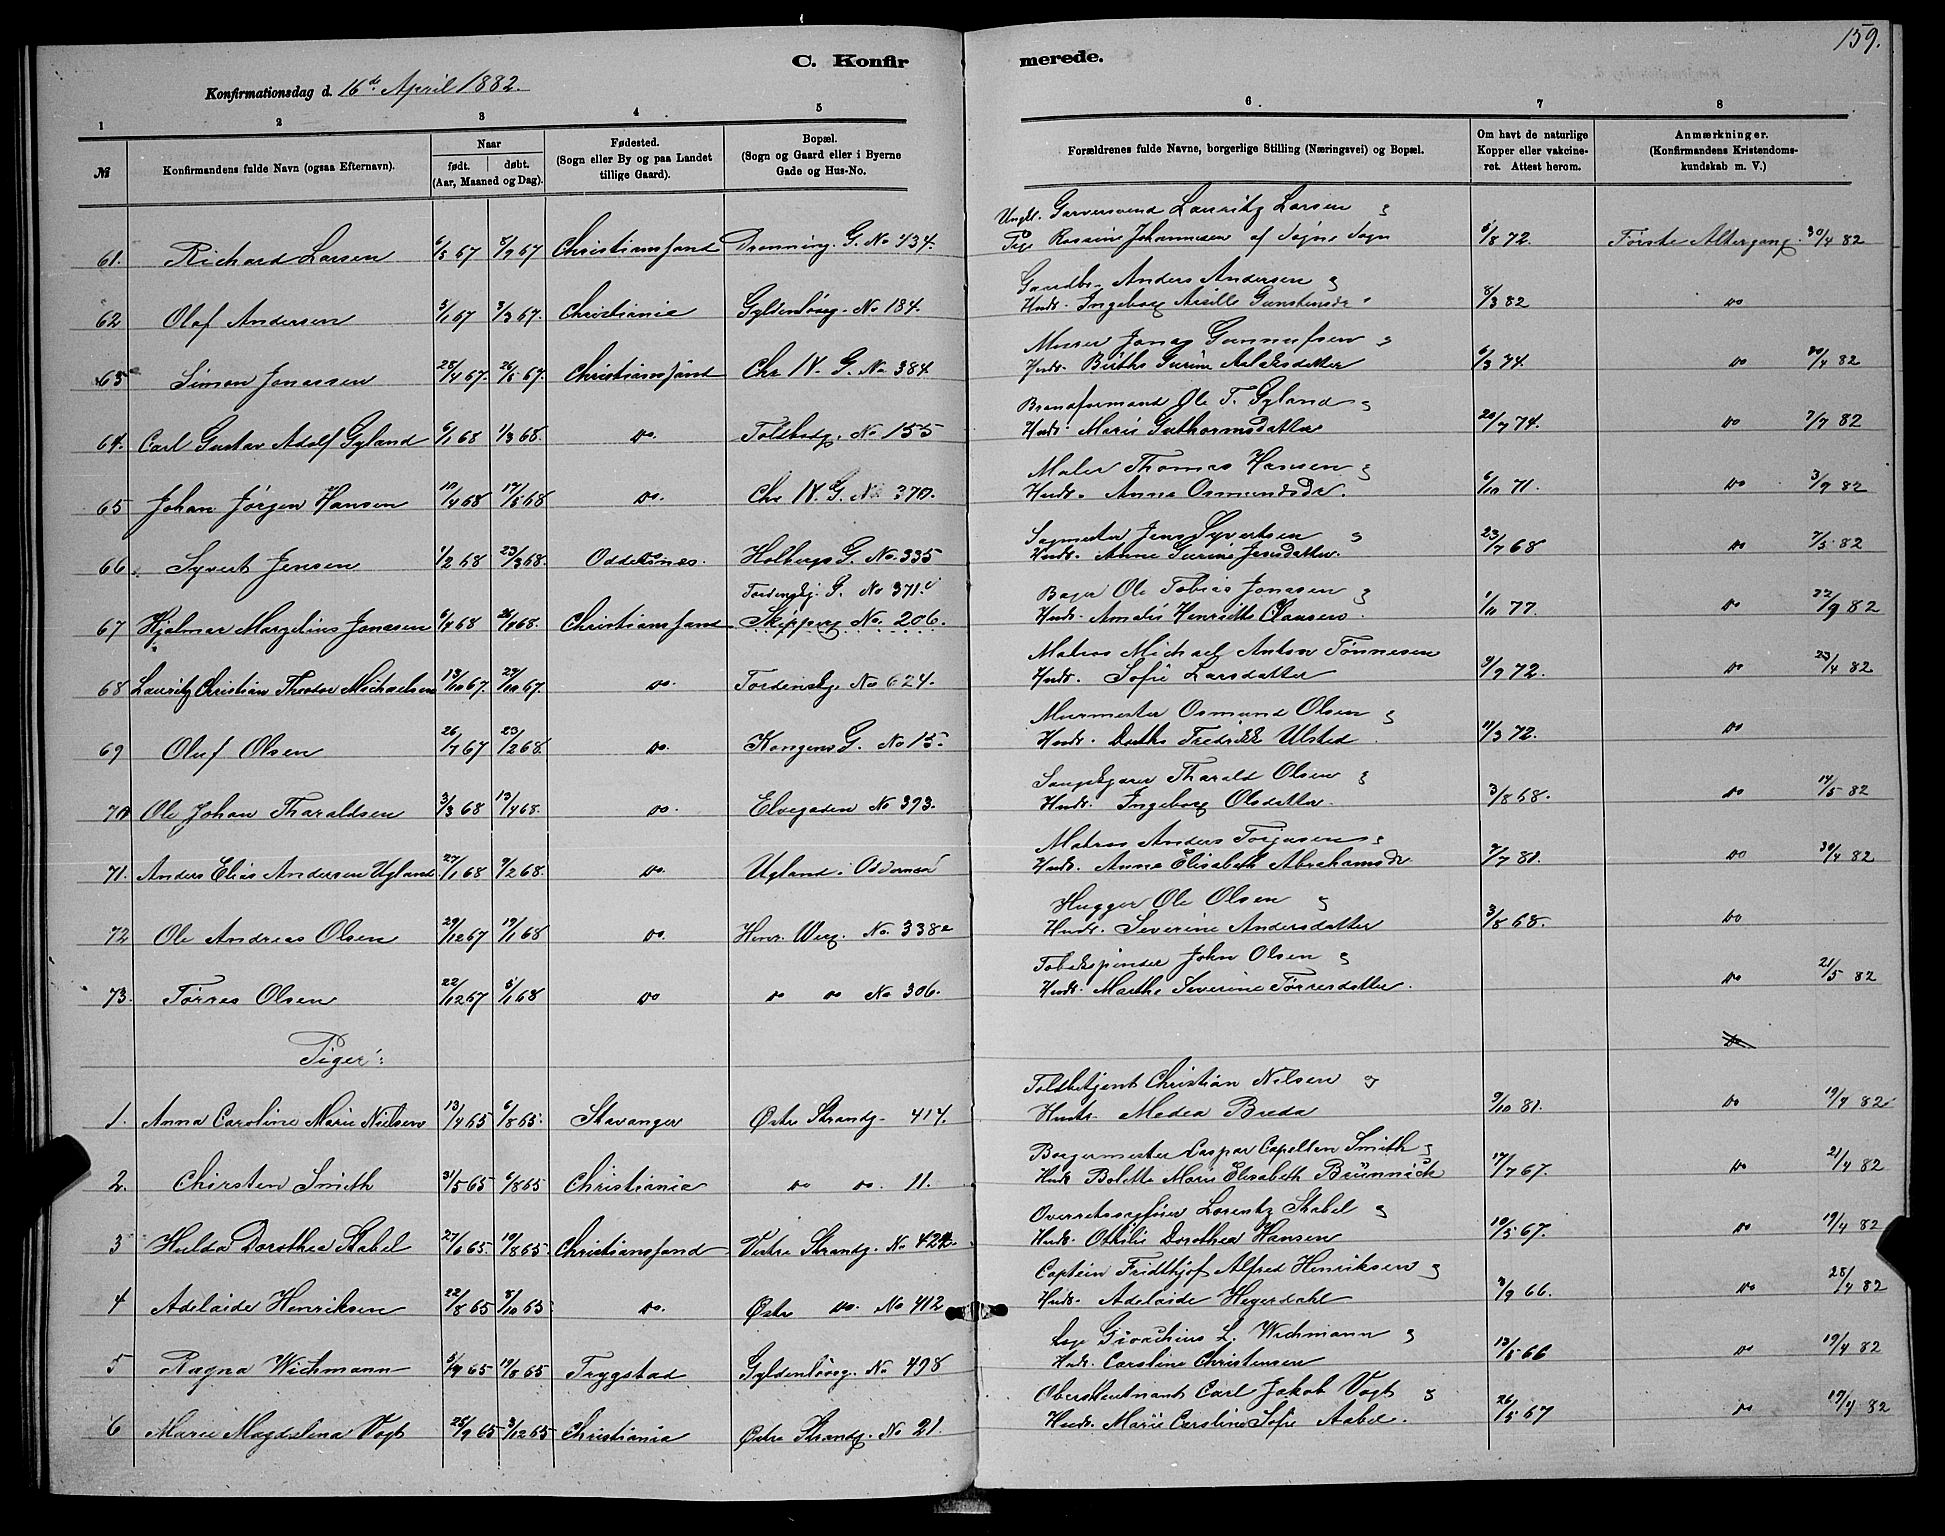 159.
C. Konfirmerede.
Konfirmationsdag d. 16de April 1882.
1 2 3 4 5 6. 7 8
№ Konfirmandens fulde Navn (ogsaa Efternavn). Naar født. døbt. (Aar, Maaned og Dag). Fødested. (Sogn eller By og paa Landet tillige Gaard). Bopæl. (Sogn og Gaard eller i Byerne Gade og Hus-No. Forældrenes fulde Navne, borgerlige Stilling (Næringsvei) og Bopæl. Om havt de naturlige Kopper eller vakcineret. Attest herom. Anmærkninger. (Konfirmandens Kristendomskundskab m. V.)
Ungk. Garversvend Lauritz Larsen &
61. Richard Larsen 6/5 67 8/9 67 Christianssand Dronning. G. No 434. Pige Rosine Johannesen af Søgne Sogn 6/8 72. Første Altergang. 30/4 82
Gaardbr. Anders Andersen &
62 Olaf Andersen 5/1 67 3/3 67. Christiania Gyldenløvsg. No 184. Hust. Ingeborg Gunstensdr. 8/3 82 do
Murer Jonas Gunnufsen &
63 Simon Jonassen 28/4 67. 26/5 67. Christianssand Chr IV. G. No 384. Hust. Birthe Gurine Aslaksdatter 6/3 74. do 30/4 82
Brandformand Ole T. Gyland &
64. Carl Gustav Adolf Gyland 6/1 68 1/3 68. do. Toldbodg. No 155 Hust. Marie Guthormsdatter 20/7 74. do 7/7 82
Maler Thomas Hansen &
65 Johan Jörgen Hansen 10/4 68 17/5 68 do. Chr IV. G. No 370. Hust. Anna Osmundsdr. 6/10 71. do 3/9 82
Sagmester Jens Syvertsen &
66. Syvert Jensen 1/2 68 23/3 68. Oddernes. Holbergs G. No. 335 Hust. Anne Gurine Jensdatter. 23/7 68 do 7/5 82
Tordenskj. G. No 371. Bager Ole Tobias Jonassen &
67 Hjalmar Margelius Jonassen 6/4 68 26/4 68. Christianssand Skipperg. No. 206. Hust. Amalie Henriette Clausen. 1/10 77. do 22/9 82
Matros Michael Anton Tönnesen
68 Lauritz Christian Theodor Michaelsen 13/10 67. 29/10 67. do. Tordenskj. No 624. Hust. Sofie Larsdatter 9/9 72. do 23/4 82
Murmester Osmund Olsen &
69 Oluf Olsen 26/7 67 23/2 68. do. Kongens G. No 15. Hust. Dorthe Fredrikke Ulsted. 11/3 72. do
Tharald Olsen &
70 Ole Johan Tharaldsen 3/3 68 13/4 68. do. Elvegaden No 393. Hust. Ingeborg Olsdatter. 3/8 68. do 14/5 82
Matros Anders Torjusen &
71. Anders Elias Andersen Ugland 27/1 68 9/2 68. do. Ugland i Oddernes Hust. Anna Elisabeth Abrahamsdr 7/7 81. do 30/4 82
Hugger Ole Olsen &
72 Ole Andreas Olsen 29/12 67 19/1 68 do. Henr. Werg. No. 338 Hust. Severine Andersdatter 3/8 68. do
Tobakspinder John Olsen &
73. Tørres Olsen 22/12 67 5/1 68 do do do No 306. Hust. Marthe Severine Tørresdatter. do 21/5 82
Piger: do
Toldbetjent Christian Nilsen &
1. Anna Caroline Marie Nielsen 13/4 65 6/8 65. Stavanger Østre Strandg. 414. Hust. Medea Breda 9/10 81. do 19/4 82
Borgermester Caspar Capelten Smith &
2. Chirsten Smith 31/5 65 6/8 65 Christiania do do. 11. Hust. Bolette Marie Elisabeth Brünnich 17/7 67. do 21/4 82
Overretssagfører Lorentz Stabel &
3 Hulda Dorothea Stabel 27/6 65. 19/8 65. Christianssand Vestre Strandg. No 422. Hust. Othilie Dorothea Hansen 19/5 67. do 19/4 82
Captein Fridthjof Alfred Henriksen &
4 Adelaide Henriksen 22/8 65 8/10 65 do. Østre do. No 412 Hust. Adelaide Heyerdahl 3/9 66. do 28/4 82
L. Wichmann &
5 Ragna Wichmann 5/9 65 19/8 65 Trygstad Gyldenløvsg. No 498 Hust. Caroline Christensen 13/5 66 do 19/4 82
Oberstleutnant Carl Jakob Vogt &
6 Marie Magdalena Vogt 25/9 65 3/12 65 Christiania Østre Strandg. No 21. Hust. Marie Caroline Sofie Aabel. 26/5 67 do 19/4 82